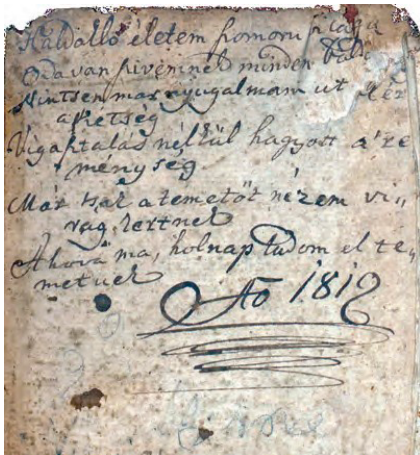 Haldalló életem homoru
Oda van sivemnek minden
Nintsen mar nyugalmam ut
a kétség
Vigasztalás nélkül hagyott a re
ménység
Már tsak a temetőt nézem vi„
rág kertnek
Ahová ma, holnap tudom el te„
metnek
Ao 1812